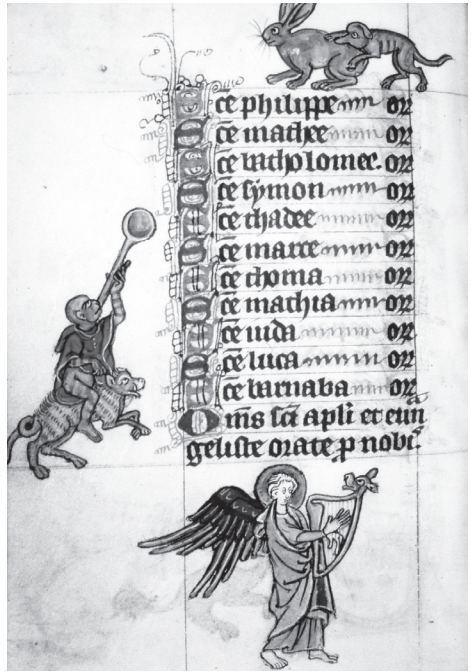 Sce philippe orͬ
Sce mathee or
Sce bartholomee. or
Sce symon or
Sce thadee or
Sce marce or
Sce thoma or
Sce mathia or
Sce iuda or
Sce luca or
Sce barnaba or
Oms sci apli et euan
geliste orate p nobis